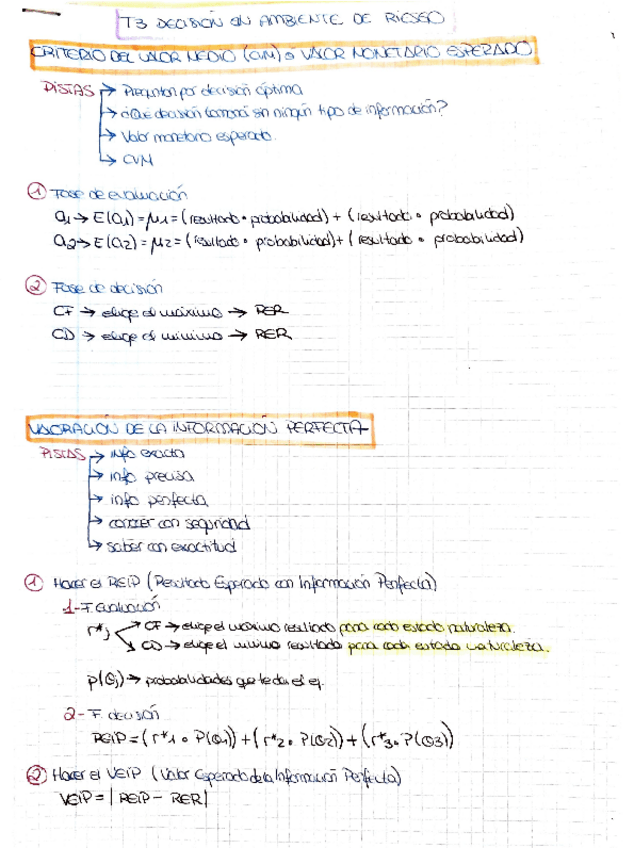 T3 DECISIÓN EN AMBIENTE DE RIESGO
CRITERIO DEL VALOR MEDIO (CVM) o VALOR MONETARIO ESPERADO
PISTAS → Preguntan por decisión óptima
→ ¿Qué decisión tomará sin ningún tipo de información?
→ Valor monetario esperado.
→ CVM
① Fase de evaluación
a₁ → E(a₁) = μ₁ = (resultado • probabilidad) + (resultado • probabilidad)
a₂ → E(a₂) = μ₂ = (resultado • probabilidad) + (resultado • probabilidad)
② Fase de decisión
CF → elige el máximo → RER
CD → elige el mínimo → RER
VALORACIÓN DE LA INFORMACIÓN PERFECTA
PISTAS → info exacta
→ info precisa
→ info perfecta
→ conocer con seguridad
→ saber con exactitud
① Hacer el REIP (Resultado Esperado con Información Perfecta)
1-F. Evaluación
r*j → CF → elige el máximo resultado para cada estado naturaleza.
→ CD → elige el mínimo resultado para cada estado naturaleza.
p(θj) → probabilidades que te da el ej.
2- F. decisión
REIP = (r*1 • P(θ1)) + (r*2 • P(θ2)) + (r*3 • P(θ3))
② Hacer el VEIP (Valor Esperado de la Información Perfecta)
VEIP = | REIP - RER |